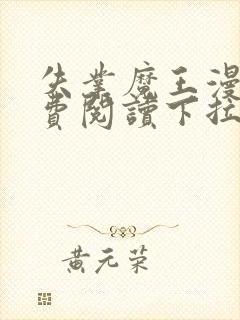 失業魔王漫
費閱讀下拉
黃元荣